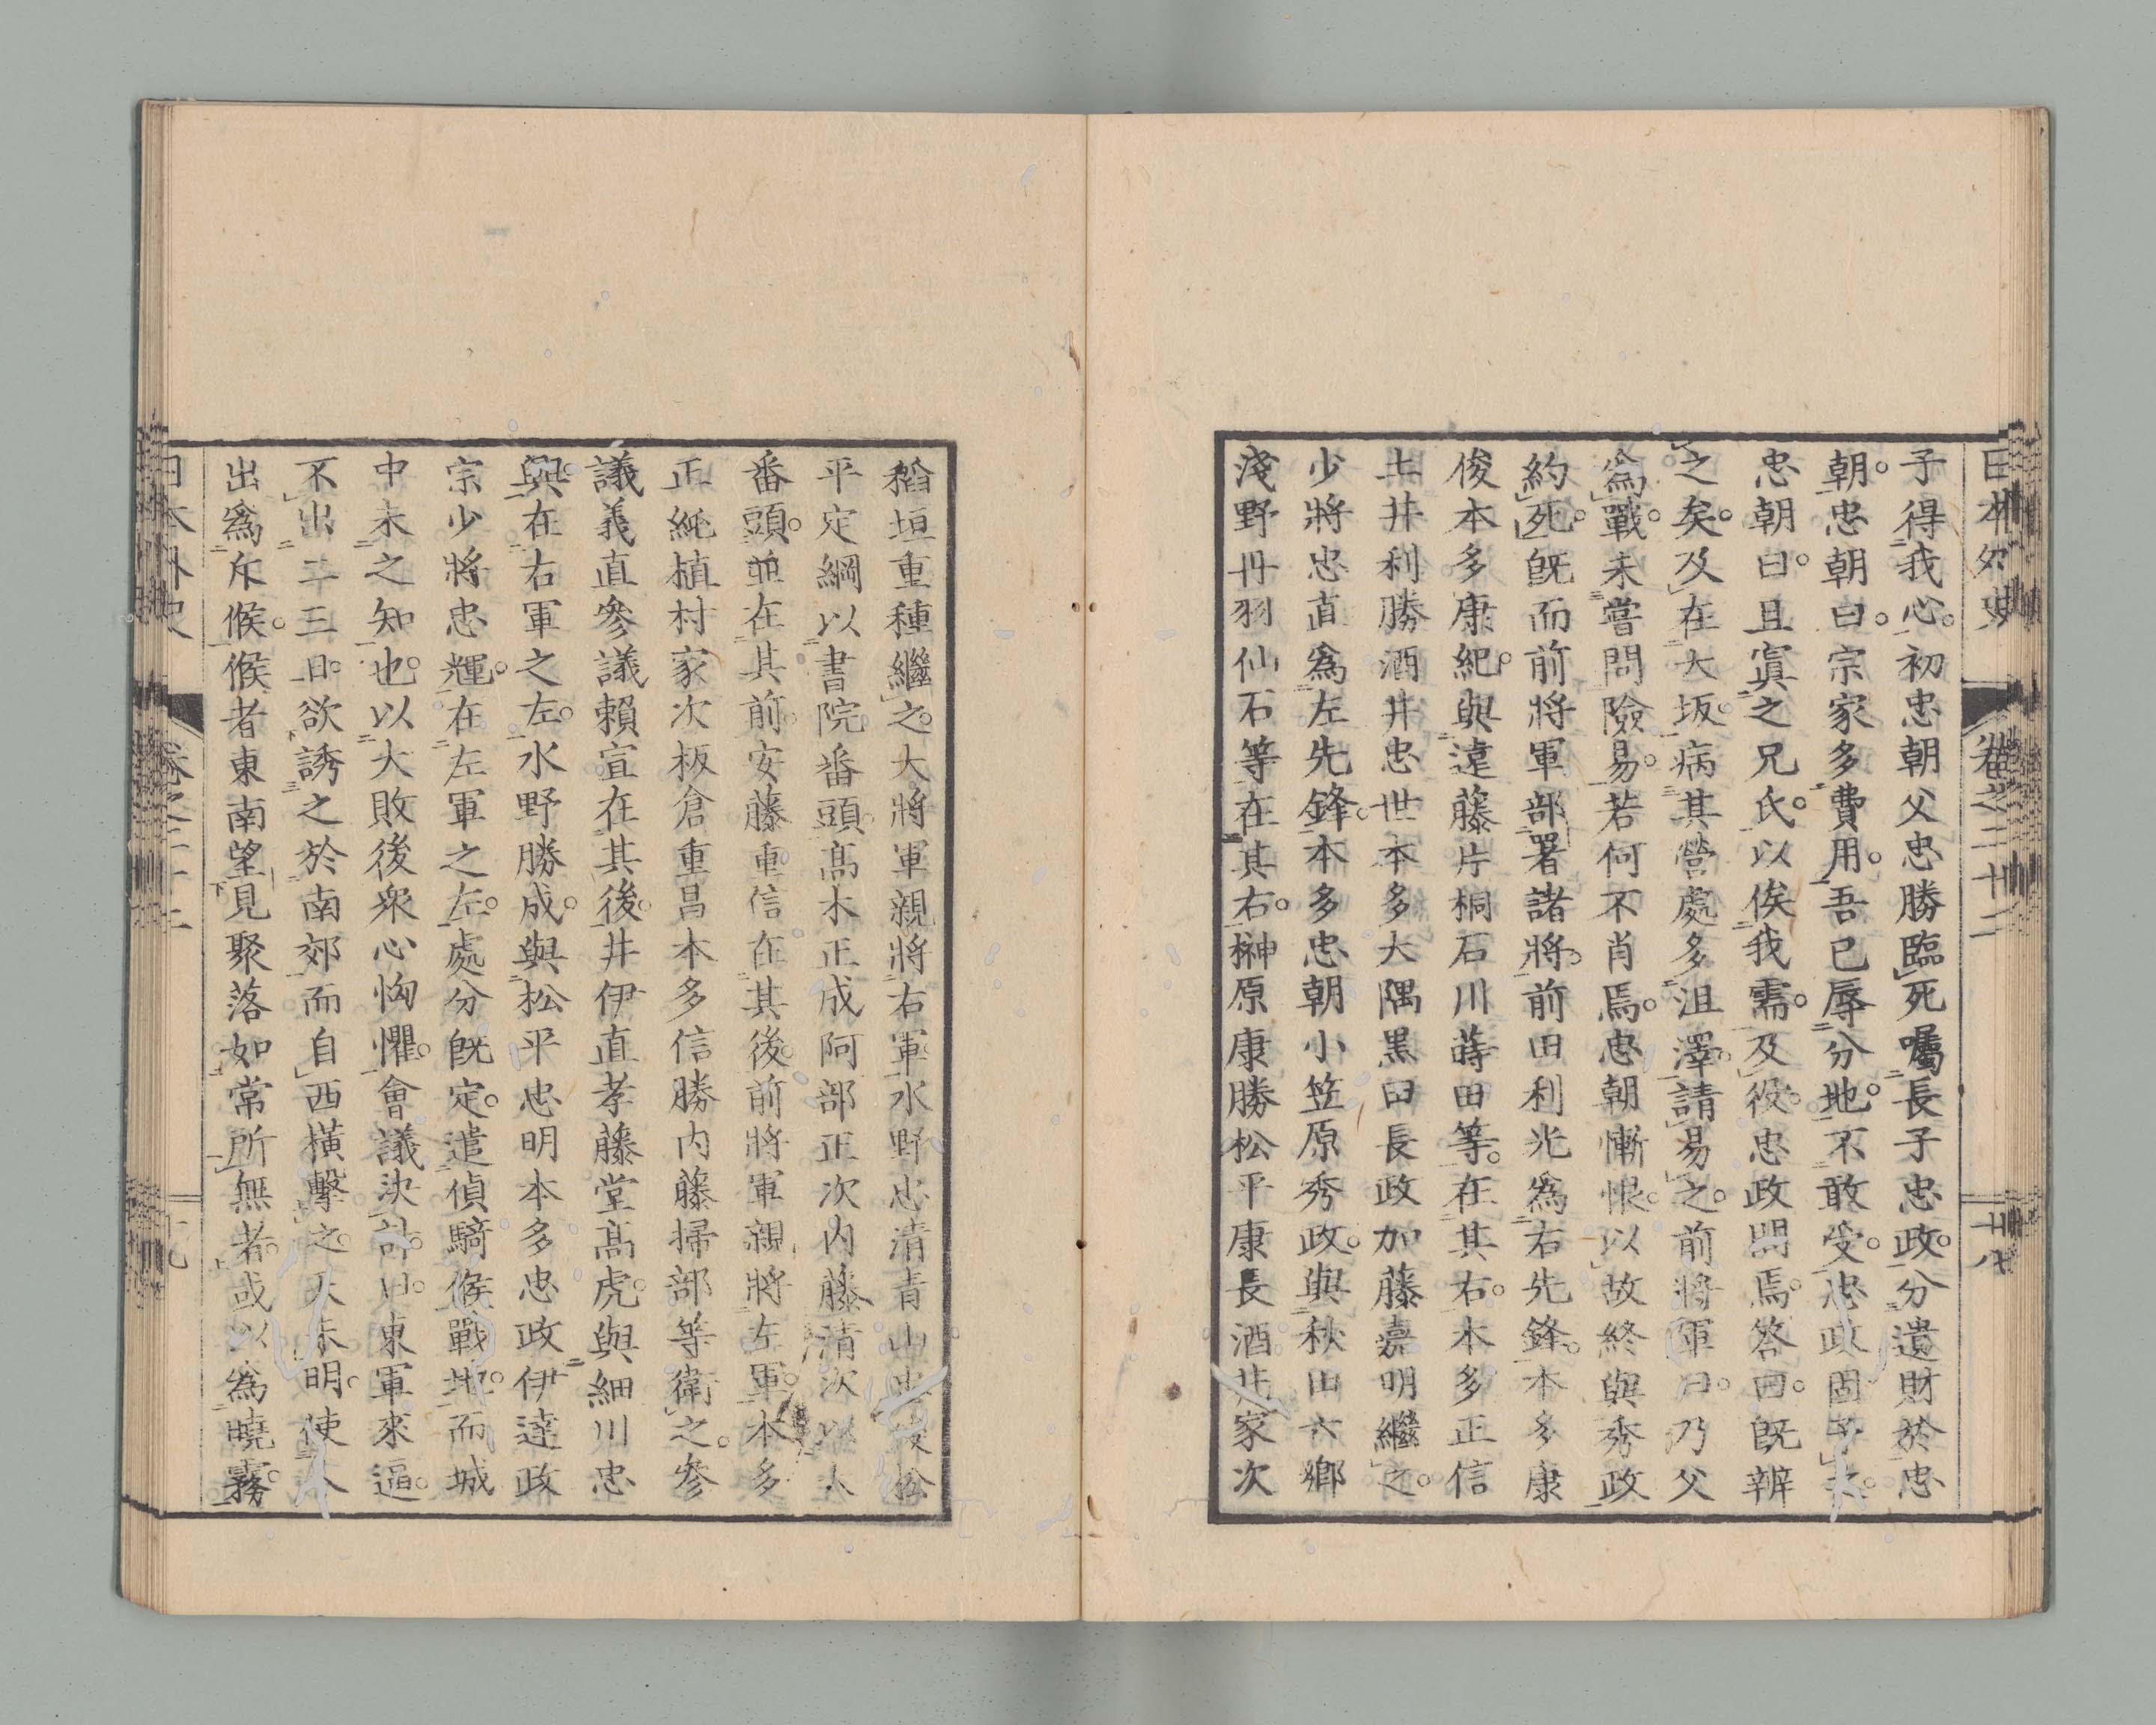 日本外史 卷之二十二 十八
子得我心。初忠朝父忠勝臨死囑長子忠政。分遺財於忠
朝。忠朝曰。宗家多費用。吾已辱分地。不敢受。忠政固予之。
忠朝曰。且寘之兄氏。以俟我需。及役。忠政問焉。答曰。既辨
之矣。及在大坂。病其營處多沮澤。請易之。前將軍曰。乃父
爲戰。未嘗問險易。若何不肖焉。忠朝慚恨。以故終與秀政
約死。既而前將軍部署諸將。前田利光爲右先鋒。本多康
俊本多康紀。與遠藤片桐石川蒔田等。在其右。本多正信
土井利勝酒井忠世本多大隅黒田長政加藤嘉明繼之。
少將忠直爲左先鋒。本多忠朝小笠原秀政。與秋田六鄉
淺野丹羽仙石等在其右。榊原康勝松平康長酒井家次
稻垣重種繼之。大將軍親將右軍。水野忠清青山忠俊松
平定綱以書院番頭。高木正成阿部正次内藤清次以大
番頭。並在其前。安藤重信在其後。前將軍親將左軍。本多
正純植村家次板倉重昌本多信勝内藤掃部等衛之。參
議義直參議賴宣在其後。井伊直孝藤堂高虎。與細川忠
興。在右軍之左。水野勝成。與松平忠明本多忠政伊達政
宗少將忠輝。在左軍之左。處分既定。遣偵騎候戰地。而城
中未之知也。以大敗後衆心恟懼。會議決計。曰。東軍來逼。
不出二三日。欲誘之於南郊。而自西橫擊之。天未明。使人
出爲斥候。候者東南望見聚落如常所無者。或以爲曉霧。
日本外史 卷之二十二 十九